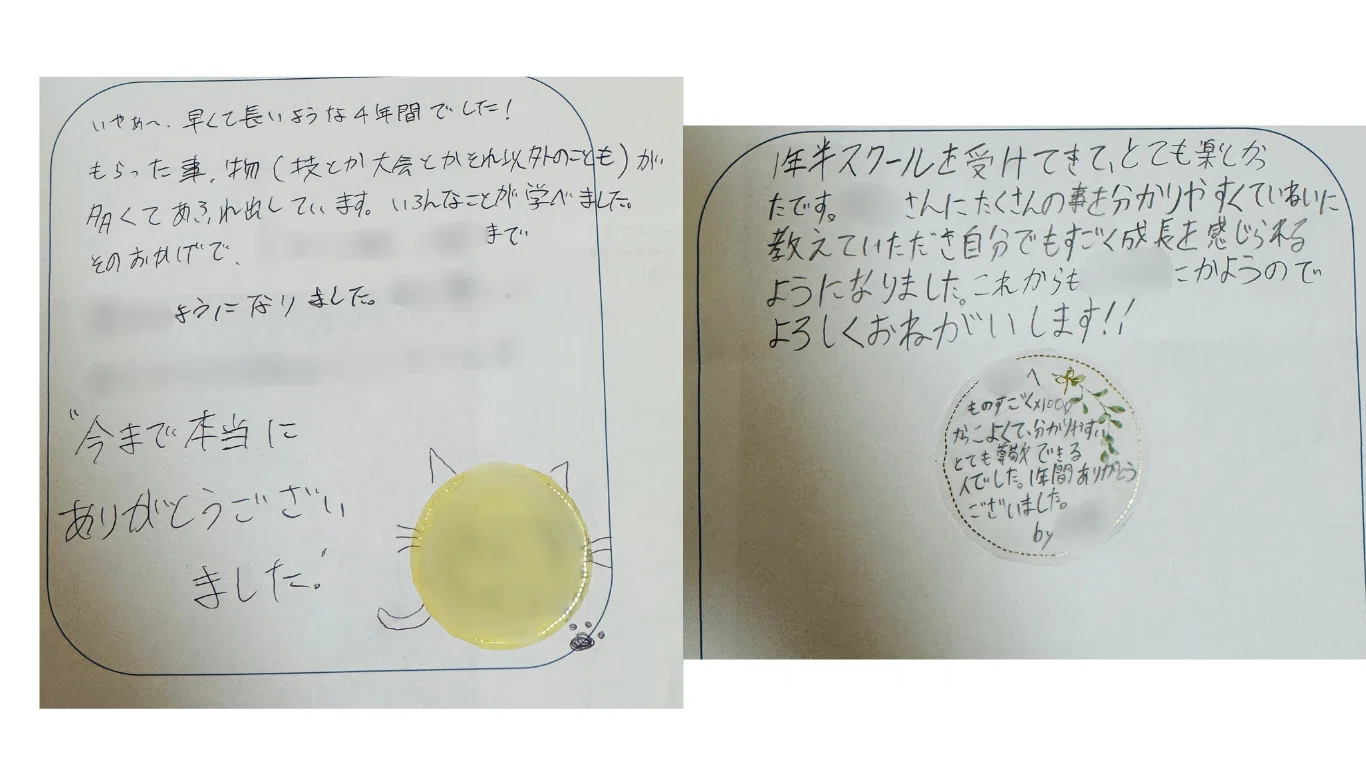 いやぁ〜、早くて長いような4年間でした!
もらった事、物(技とか大会とかそれ以外のことも)が
多くてあふれ出しています。いろんなことが学べました。
そのおかげで、
まで
ようになりました。
"今まで本当に
ありがとうござい
ました。"
1年半スクールを受けてきて、とても楽しか
たです。 さんにたくさんの事を分かりやすくていねいに
教えていただき自分でもすごく成長を感じられる
ようになりました。これからも にかようので
よろしくおねがいします!!
へ
ものすごく×1000
かっこよくて、分かりやすい
とても尊敬できる
人でした。1年間ありがとう
ございました。
by